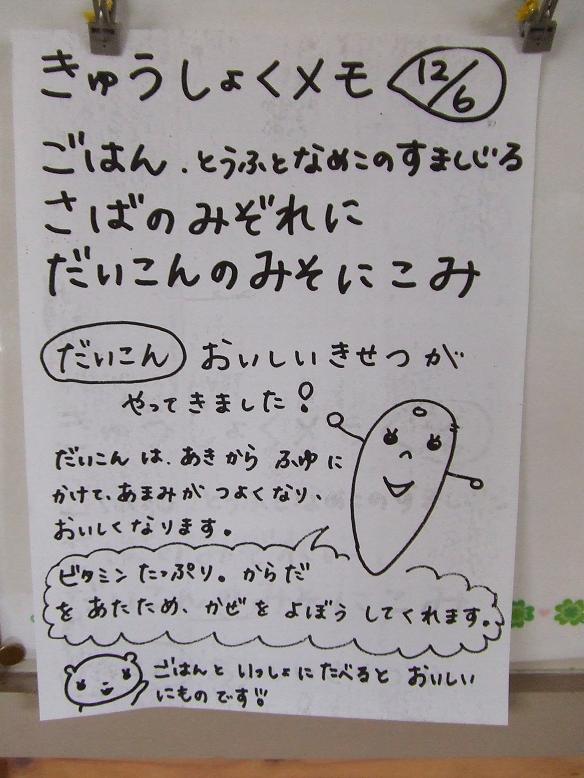 きゅうしょくメモ 12/6
ごはん．とうふとなめこのすましじる
さばのみぞれに
だいこんのみそにこみ
だいこん おいしいきせつが
やってきました！
だいこんは、あきからふゆに
かけて、あまみがつよくなり、
おいしくなります。
ビタミンたっぷり。からだ
をあたため、かぜをよぼうしてくれます。
ごはんといっしょにたべるとおいしい
にものです!!